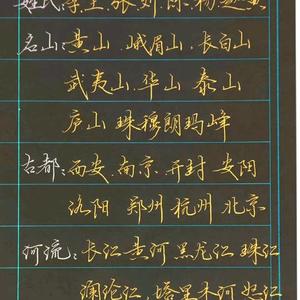 姓氏:李王.张刘.陈.杨.赵黄
名山:黄山.峨眉山.长白山
武夷山.华山 泰山
庐山 珠穆朗玛峰
古都:西安.南京.开封 安阳
洛阳 郑州 杭州 北京
河流:长江 黄河 黑龙江 珠江
澜沧江.塔里木河 怒江